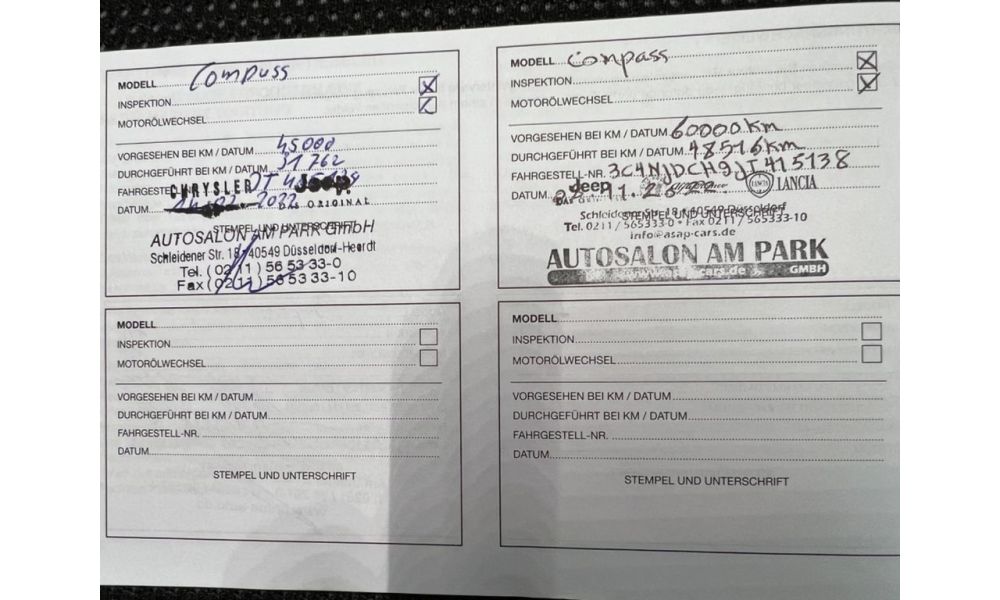 MODELL Compass
INSPEKTION
MOTORÖLWECHSEL
VORGESEHEN BEI KM / DATUM 45000
DURCHGEFÜHRT BEI KM / DATUM 31762
FAHRGESTE
CHRYSLER Jeep
DATUM 2022 DAS ORIGINAL
STEMPEL UND UNTERSCHRIFT
AUTOSALON AM PARK GmbH
Schleidener Str. 18 · 40549 Düsseldorf-Heerdt
Tel. (0211) 56 53 33-0
Fax (0211) 56 53 33-10
MODELL Compass
INSPEKTION
MOTORÖLWECHSEL
VORGESEHEN BEI KM / DATUM 60000 Km
DURCHGEFÜHRT BEI KM / DATUM 48516 Km
FAHRGESTELL-NR. 3C4NJDCH9JT415138
DATUM Jeep 11.20 LANCIA LANCIA
Schleidener Str. 18 · 40549 Düsseldorf
STEMPEL UND UNTERSCHRIFT
Tel. 0211 / 565333-0 · Fax 0211 / 565333-10
info@asap-cars.de
AUTOSALON AM PARK
www.asap-cars.de GMBH
MODELL
INSPEKTION
MOTORÖLWECHSEL
VORGESEHEN BEI KM / DATUM
DURCHGEFÜHRT BEI KM / DATUM
FAHRGESTELL-NR.
DATUM
STEMPEL UND UNTERSCHRIFT
MODELL
INSPEKTION
MOTORÖLWECHSEL
VORGESEHEN BEI KM / DATUM
DURCHGEFÜHRT BEI KM / DATUM
FAHRGESTELL-NR.
DATUM
STEMPEL UND UNTERSCHRIFT